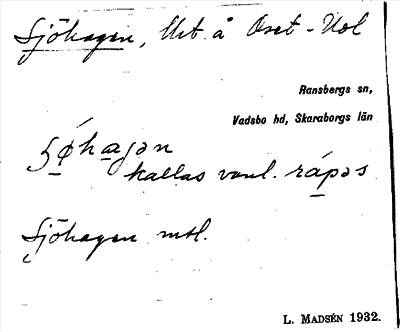 Sjöhagen, Urt å Oset-Udl
Ransbergs sn,
Vadsbo hd, Skaraborgs län
ʃǿhagən
kallas vanl. rápəs
Sjöhagen mtl.
L. MADSÉN 1932.